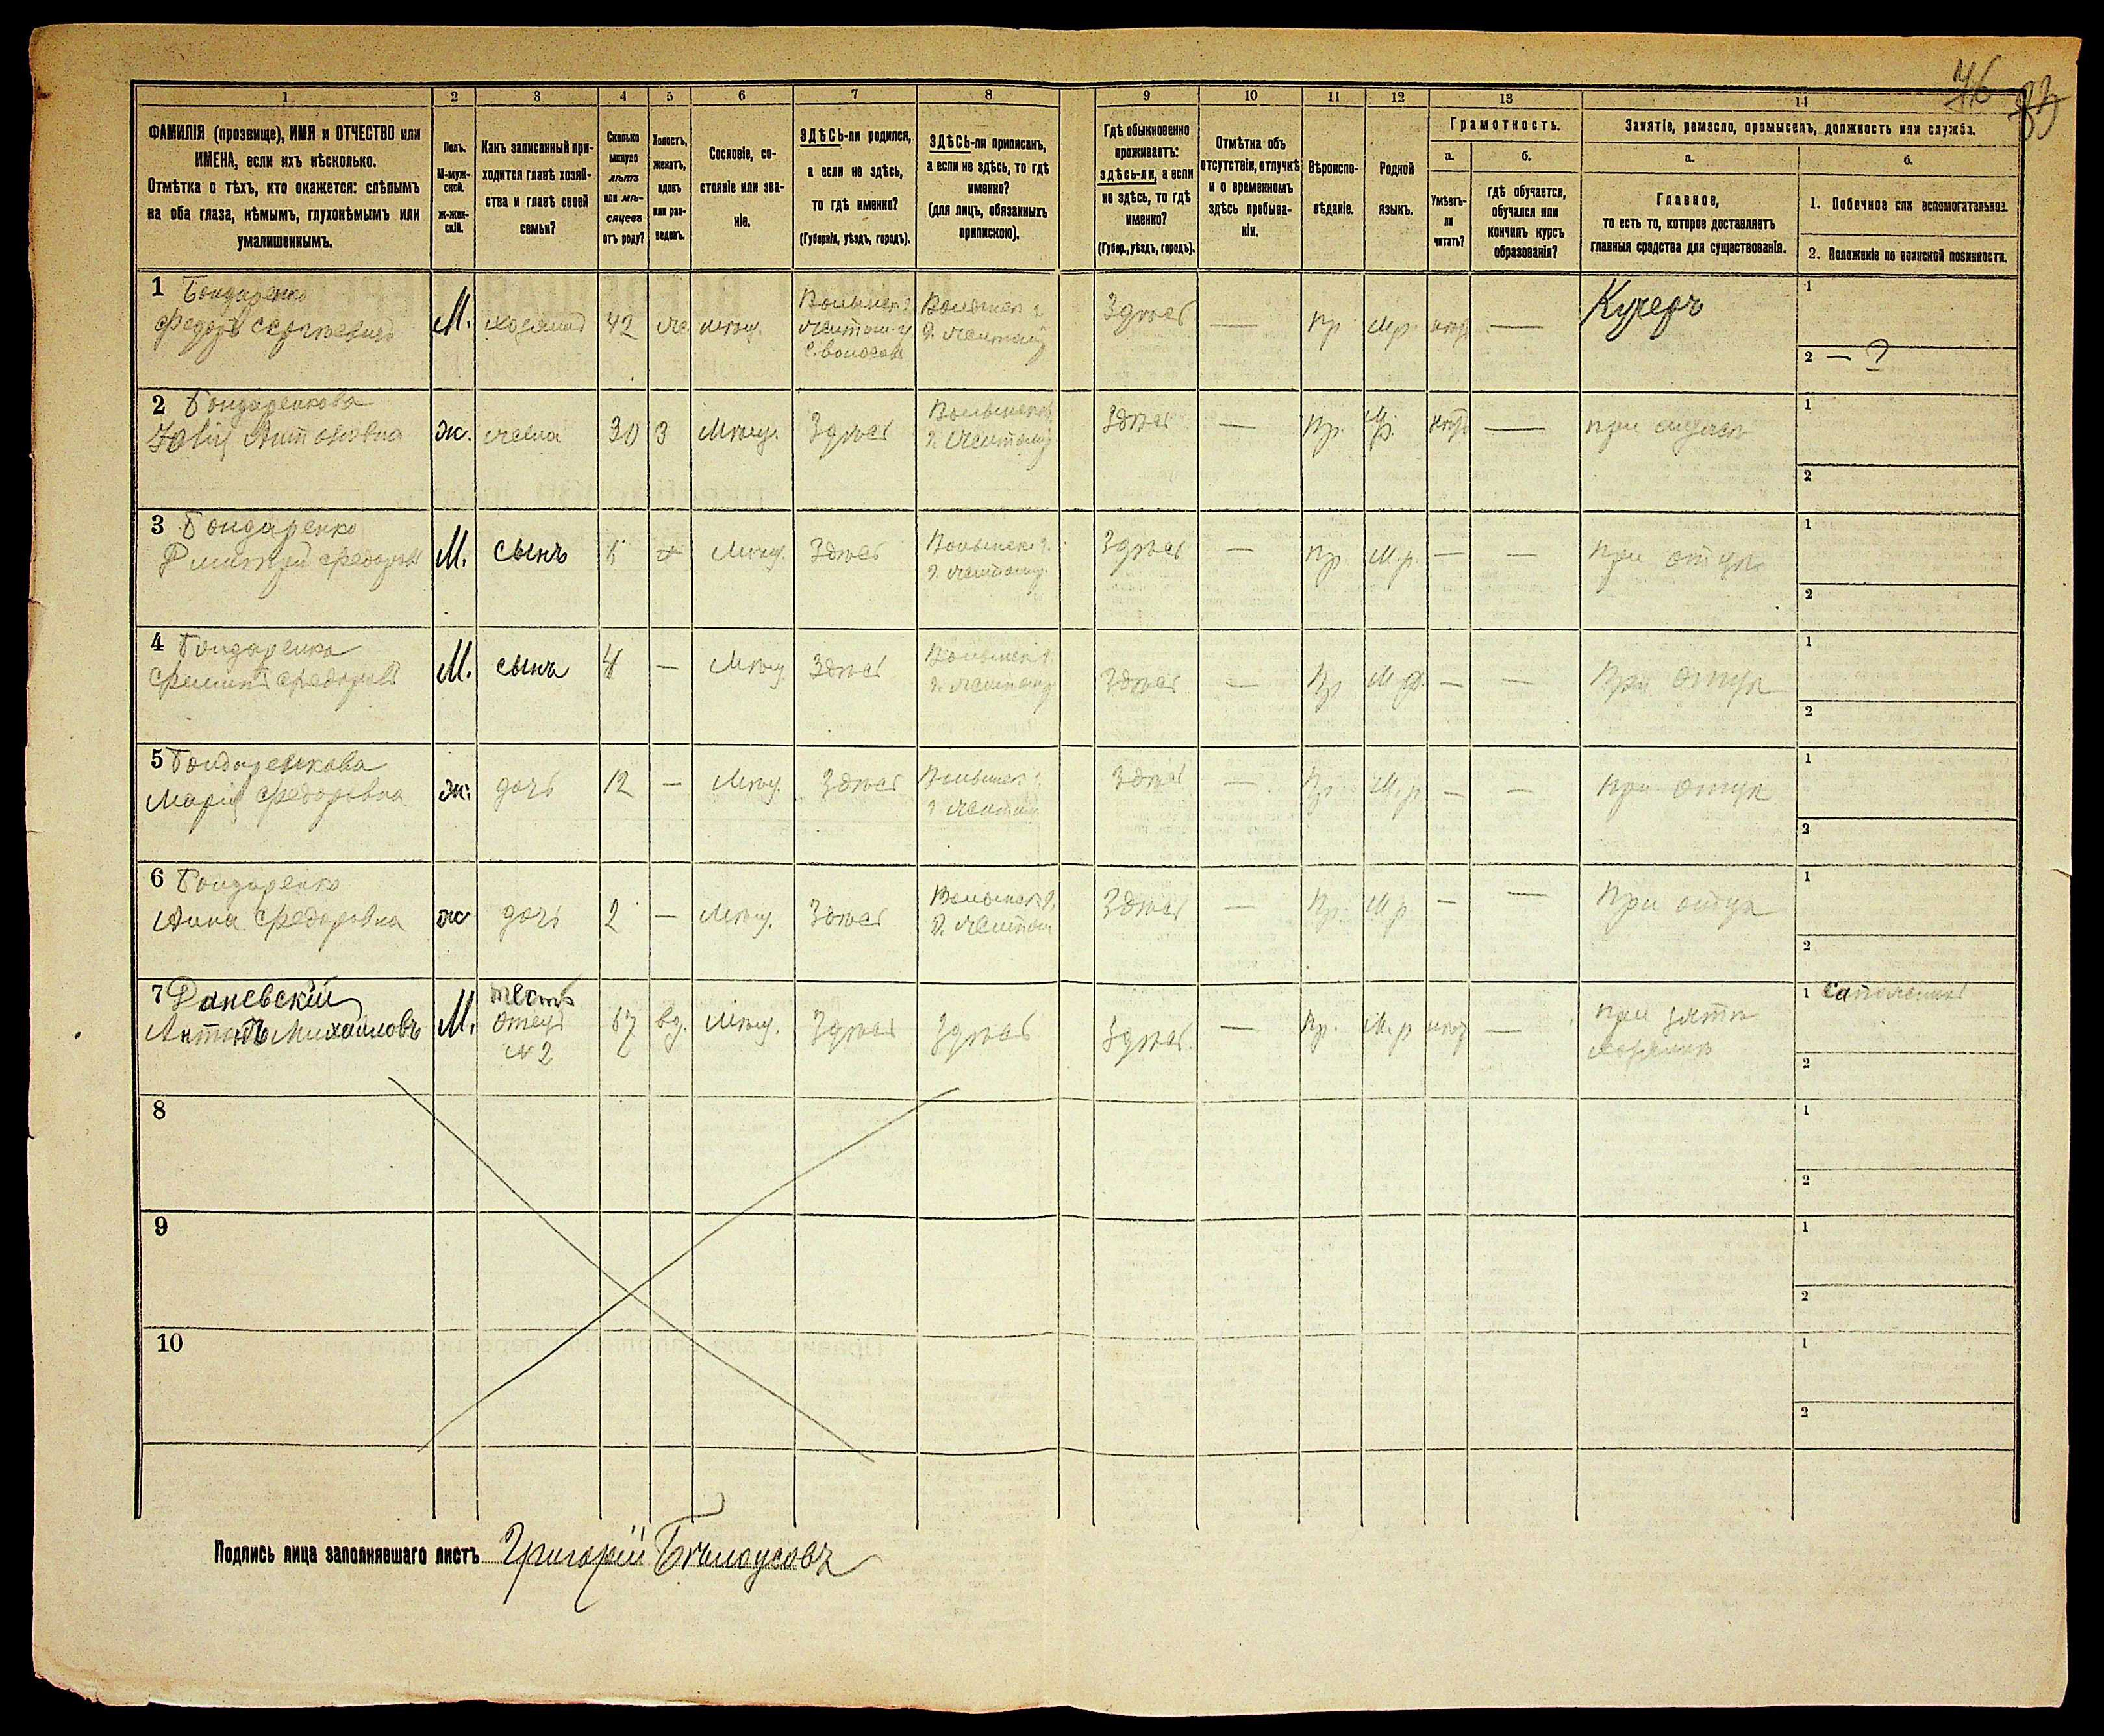 46
1 2 3 4 5 6 7 8 9 10 11 12 13 14
ФАМИЛІЯ (прозвище), ИМЯ и ОТЧЕСТВО или
ИМЕНА, если ихъ нѣсколько.
Отмѣтка о тѣхъ, кто окажется: слѣпымъ
на оба глаза, нѣмымъ, глухонѣмымъ или
умалишеннымъ.
Полъ.
М-муж-
ской.
Ж-жен-
скій.
Какъ записанный при-
ходится главѣ хозяй-
ства и главѣ своей
семьи?
Сколько
минуло
лѣтъ
или мѣ-
сяцевъ
отъ роду?
Холостъ,
женатъ,
вдовъ
или раз-
веденъ.
Сословіе, со-
стояніе или зва-
ніе.
ЗДѢСЬ-ли родился,
а если не здѣсь,
то гдѣ именно?
(Губернія, уѣздъ, городъ).
ЗДѢСЬ-ли приписанъ,
а если не здѣсь, то гдѣ
именно?
(для лицъ, обязанныхъ
припискою).
Гдѣ обыкновенно
проживаетъ:
здѣсь-ли, а если
не здѣсь, то гдѣ
именно?
(Губер., уѣздъ, городъ).
Отмѣтка объ
отсутствіи, отлучкѣ
и о временномъ
здѣсь пребыва-
ніи.
Вѣроиспо-
вѣданіе.
Родной
языкъ.
Грамотность.
а.
Умѣетъ-
ли
читать?
б.
гдѣ обучается,
обучался или
кончилъ курсъ
образованія?
Занятіе, ремесло, промыселъ, должность или служба.
а.
Главное,
то есть то, которое доставляетъ
главныя средства для существованія.
б.
1. Побочное или вспомогательное.
2. Положеніе по воинской повинности.
1 Бондаренко
Федоръ М. хозяинъ 42 Здѣсь — пр. м.р. — Кучеръ 1
2 — ?
2 Бондаренкова
Антоновна ж. жена 30 З Мѣщ. Здѣсь Здѣсь — пр. м.р. — 1
2
3 Бондаренко
Дмитрій Федоровъ М. сынъ Мѣщ. Здѣсь Здѣсь — пр. м.р. — — при отцѣ 1
2
4 Бондаренко
Федоровъ М. сынъ 4 — Мѣщ. Здѣсь Здѣсь — пр. м.р. — — при отцѣ 1
2
5 Бондаренкова
Марія Федоровна ж. дочь 12 — Мѣщ. Здѣсь Здѣсь — пр. м.р. — — при отцѣ 1
2
6 Бондаренко
Анна Федоровна ж. дочь 2 — Мѣщ. Здѣсь Здѣсь — пр. м.р. — — при отцѣ 1
2
7 Даневскій
Антонъ Михайловъ М. тесть
отецъ
№ 2 67 вд. Мѣщ. Здѣсь Здѣсь Здѣсь — пр. м.р. — при зятѣ
хозяинѣ 1 сапожникъ
2
8 1
2
9 1
2
10 1
2
Подпись лица заполнявшаго листъ Григорій Бѣлоусовъ